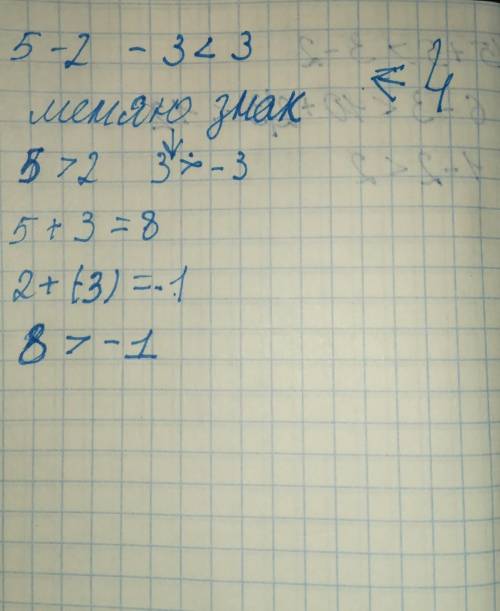 5 - 2 - 3 < 3
≤ 4
меняю знак
5 > 2 3 > - 3
5 + 3 = 8
2 + (-3) = -1
8 > - 1